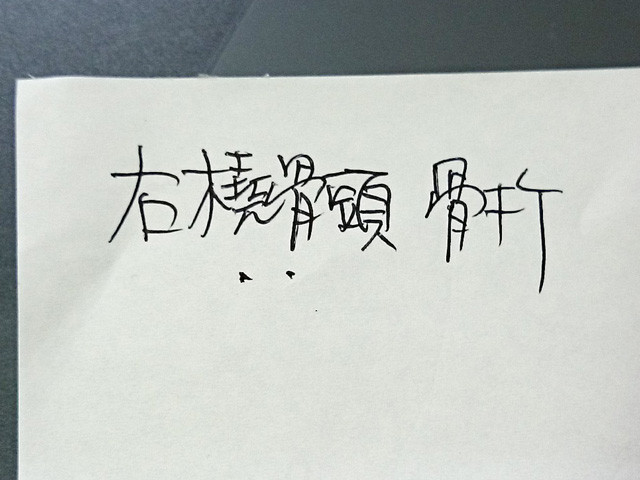 右橈骨頭 骨折